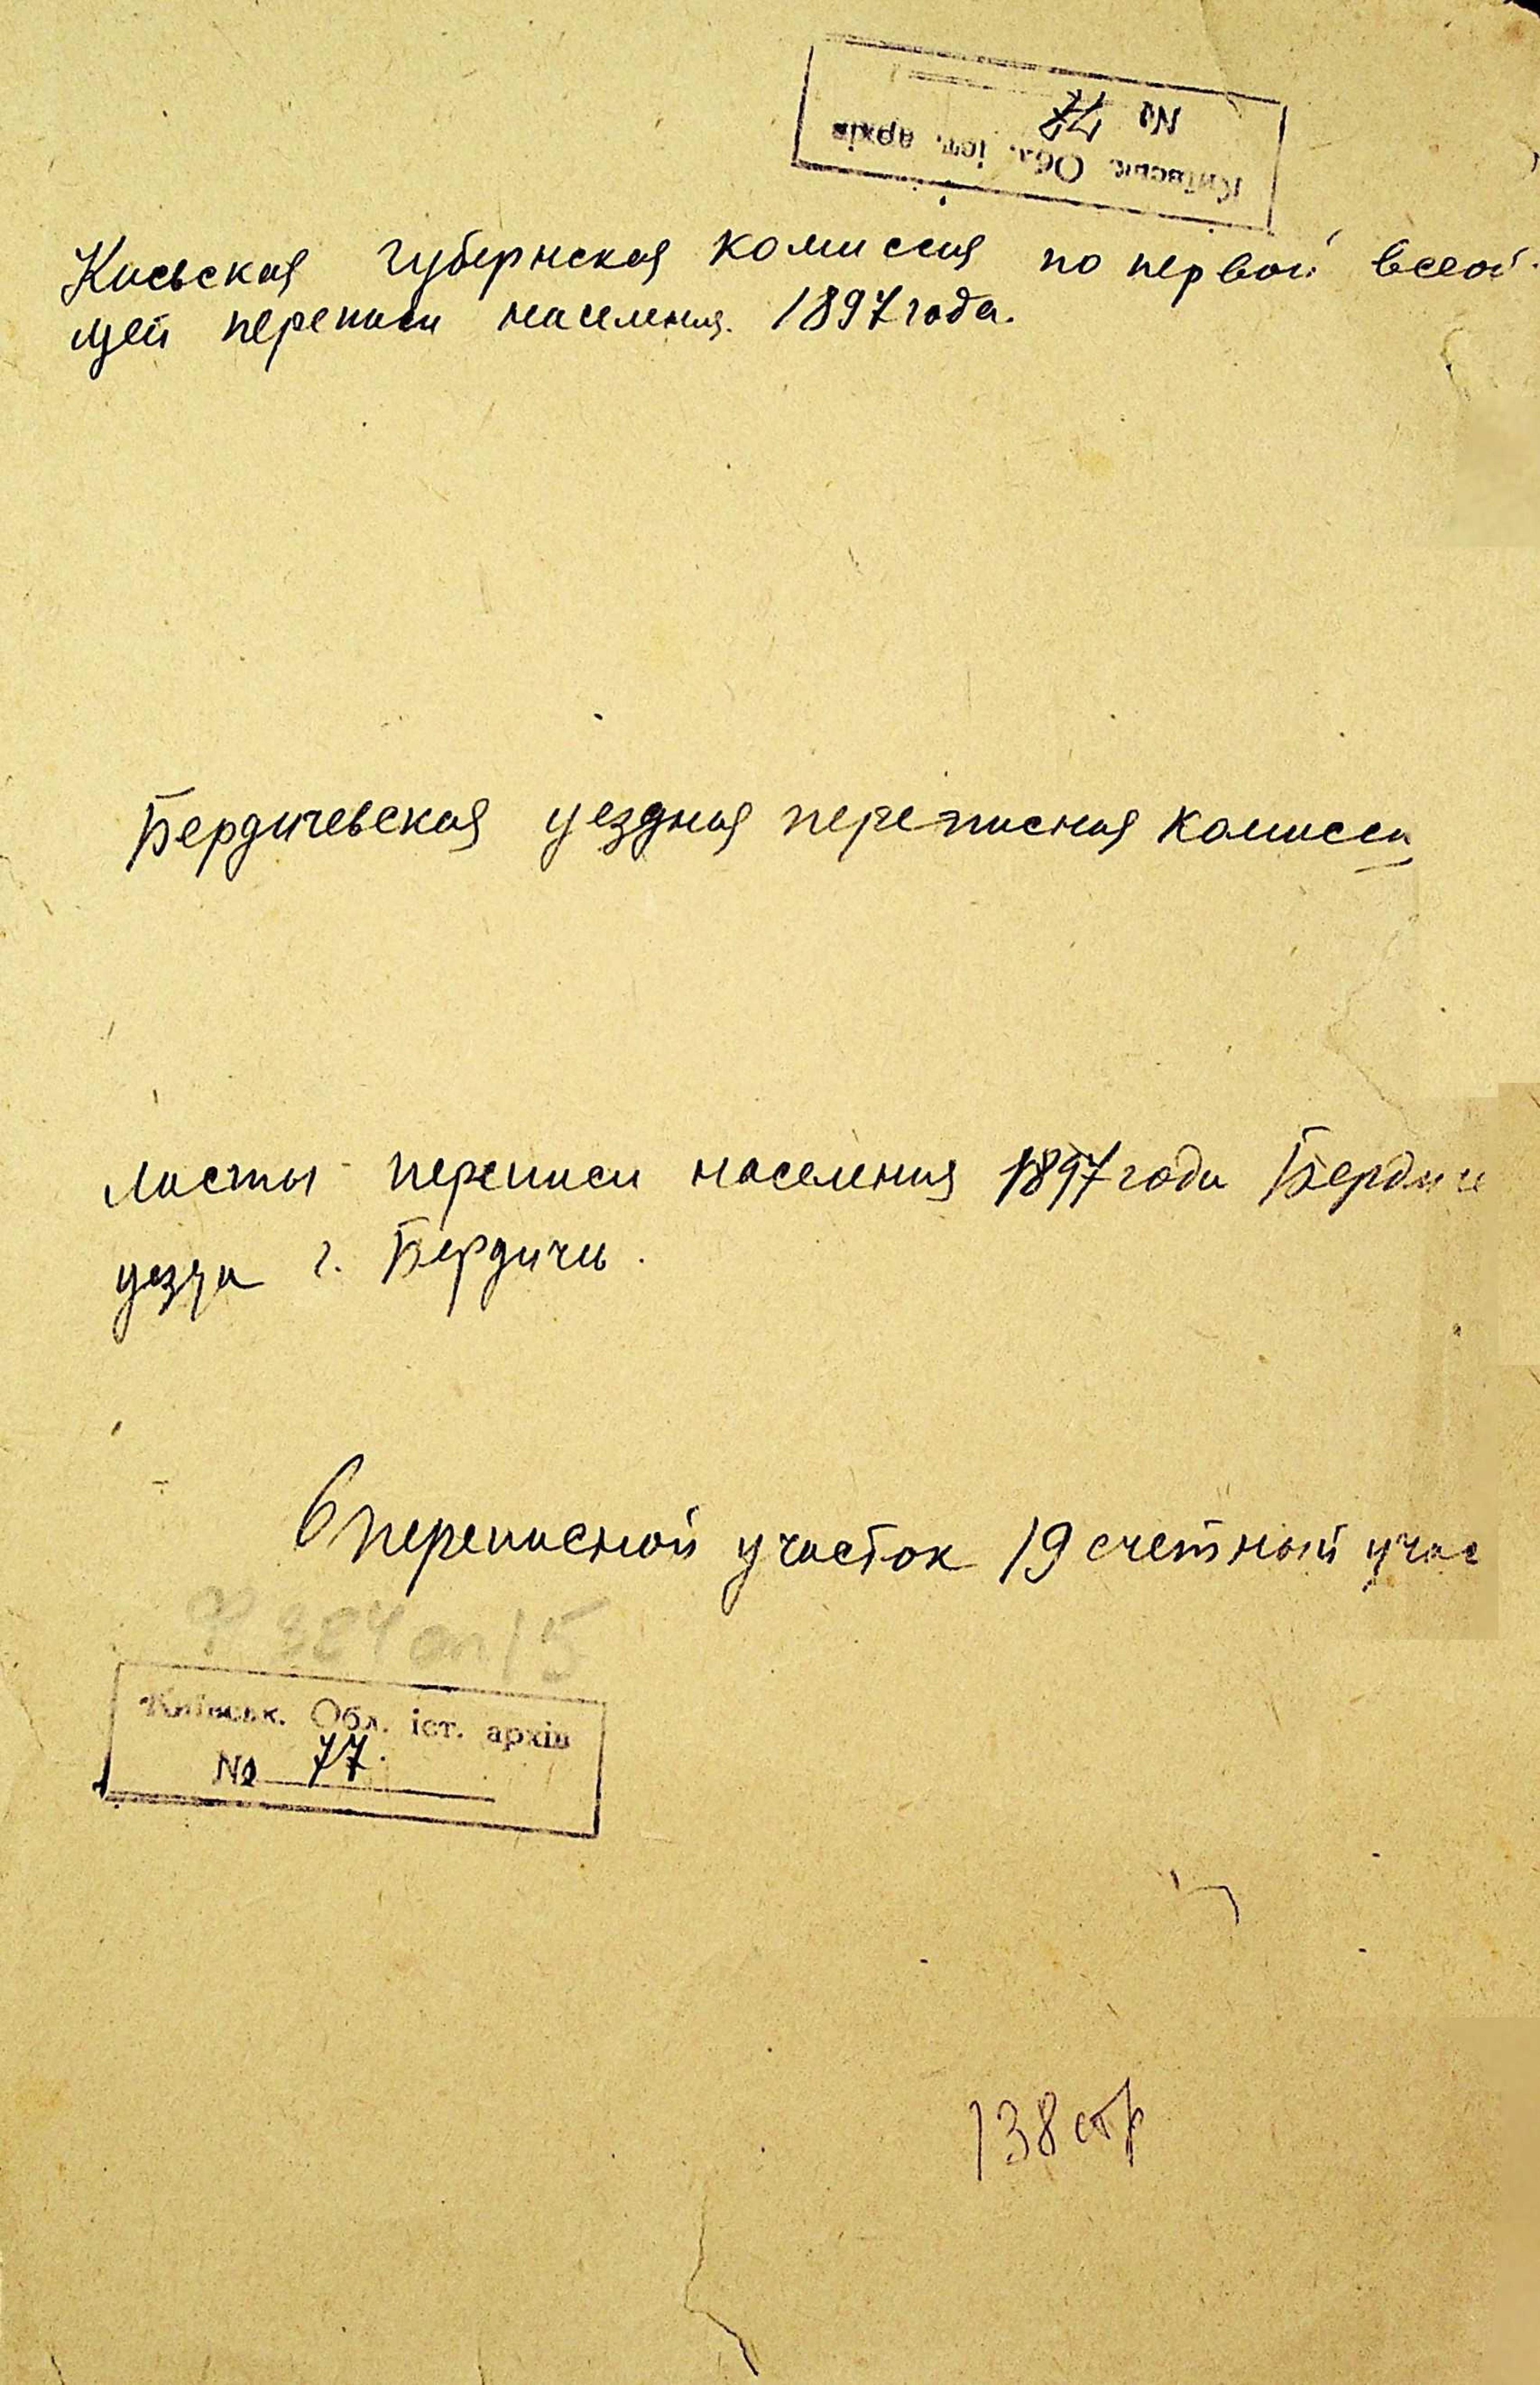 Київськ. Обл. іст. архів
№ 77
Киевская губернская комиссия по первой всеоб-
щей переписи населения 1897 года.
Бердичевская уездная переписная комисси
Листы переписи населения 1897 года Бердиче
уезда г. Бердичев.
6 переписной участок 19 счетный учас
Київськ. Обл. іст. архів
№ 77.
138 стр